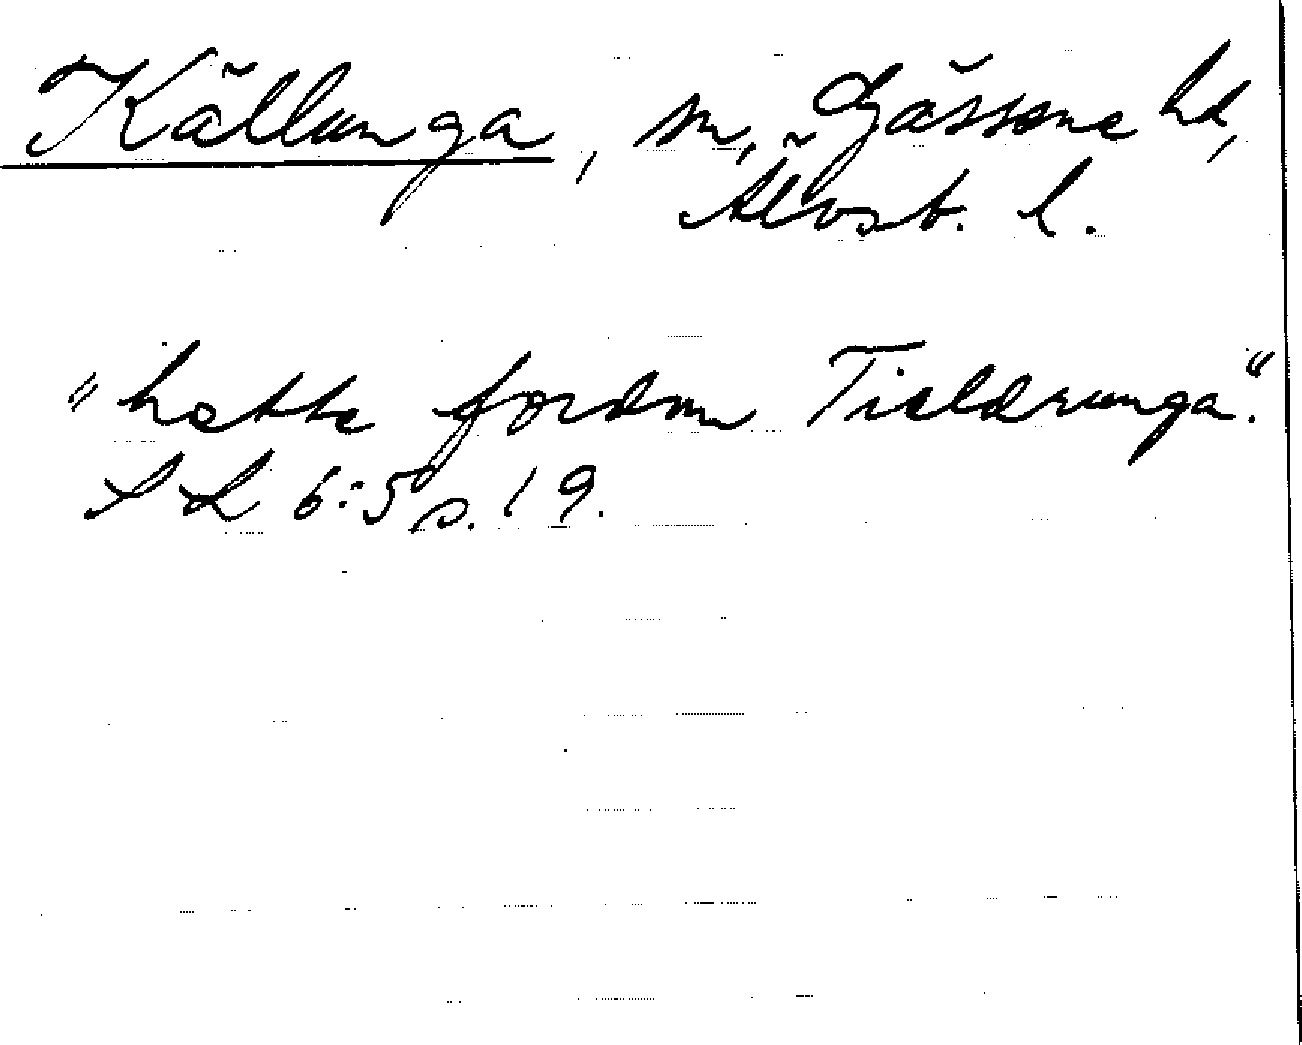 Källunga, sn, Gäsene hd,
Älvsb. l.
"hette fordom Tieldrunga".
SL 6:5 s. 19.